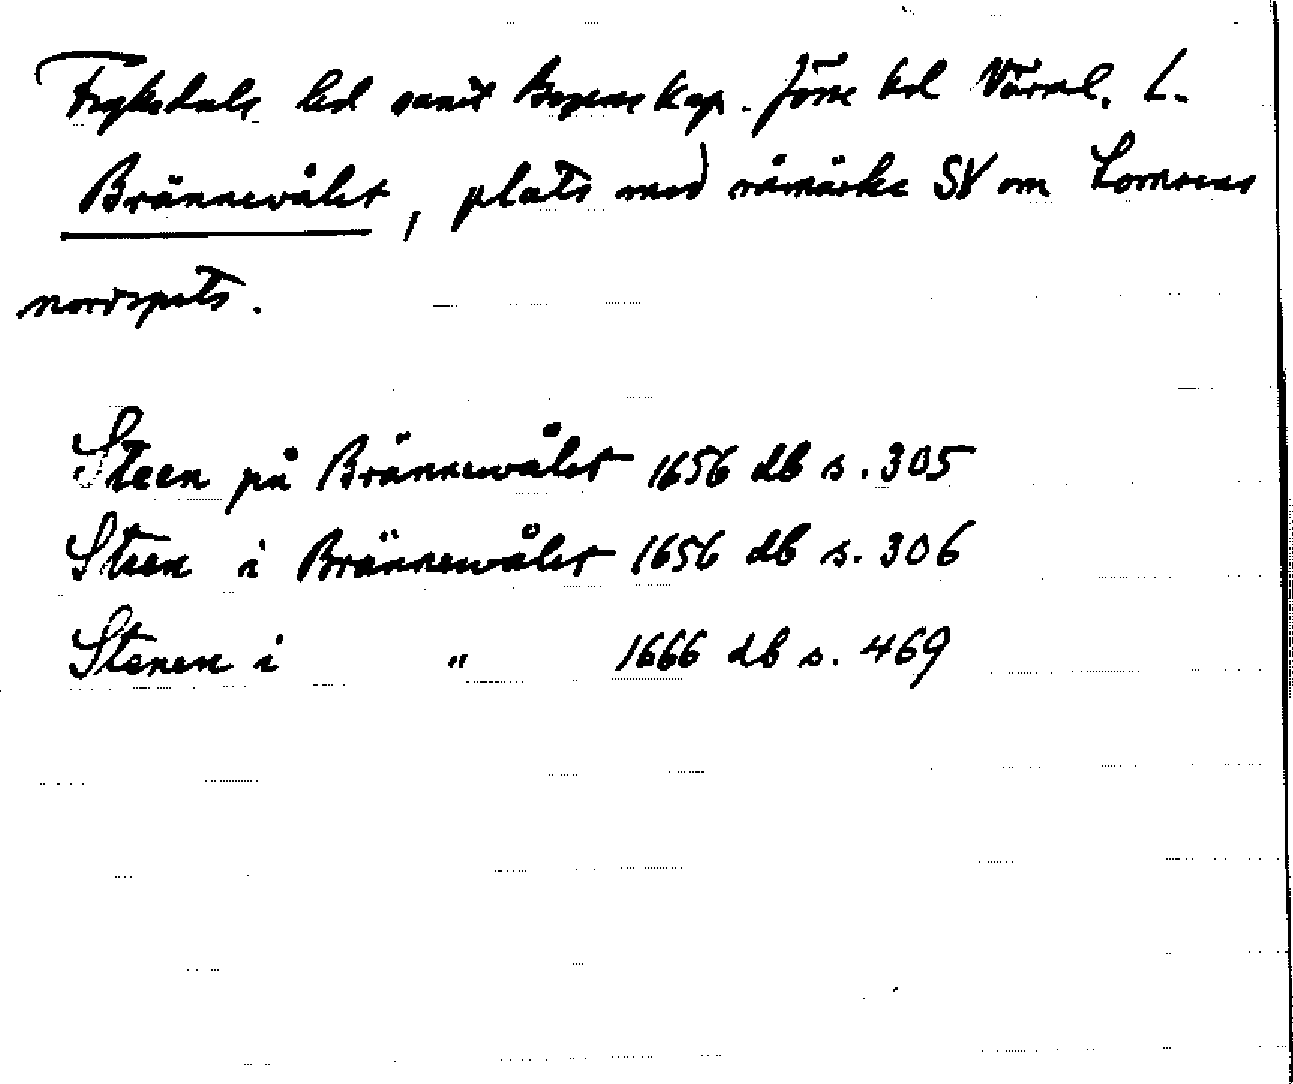 Fryksdals hd samt Bogens kap. Jösse hd Värml. L.
Brännewålet, plats med råmärke SV om Lomsens
nordspets.
Steen på Brännewålet 1656 db s. 305
Steen i Brännewålet 1656 db s. 306
Stenen i " 1666 db s. 469